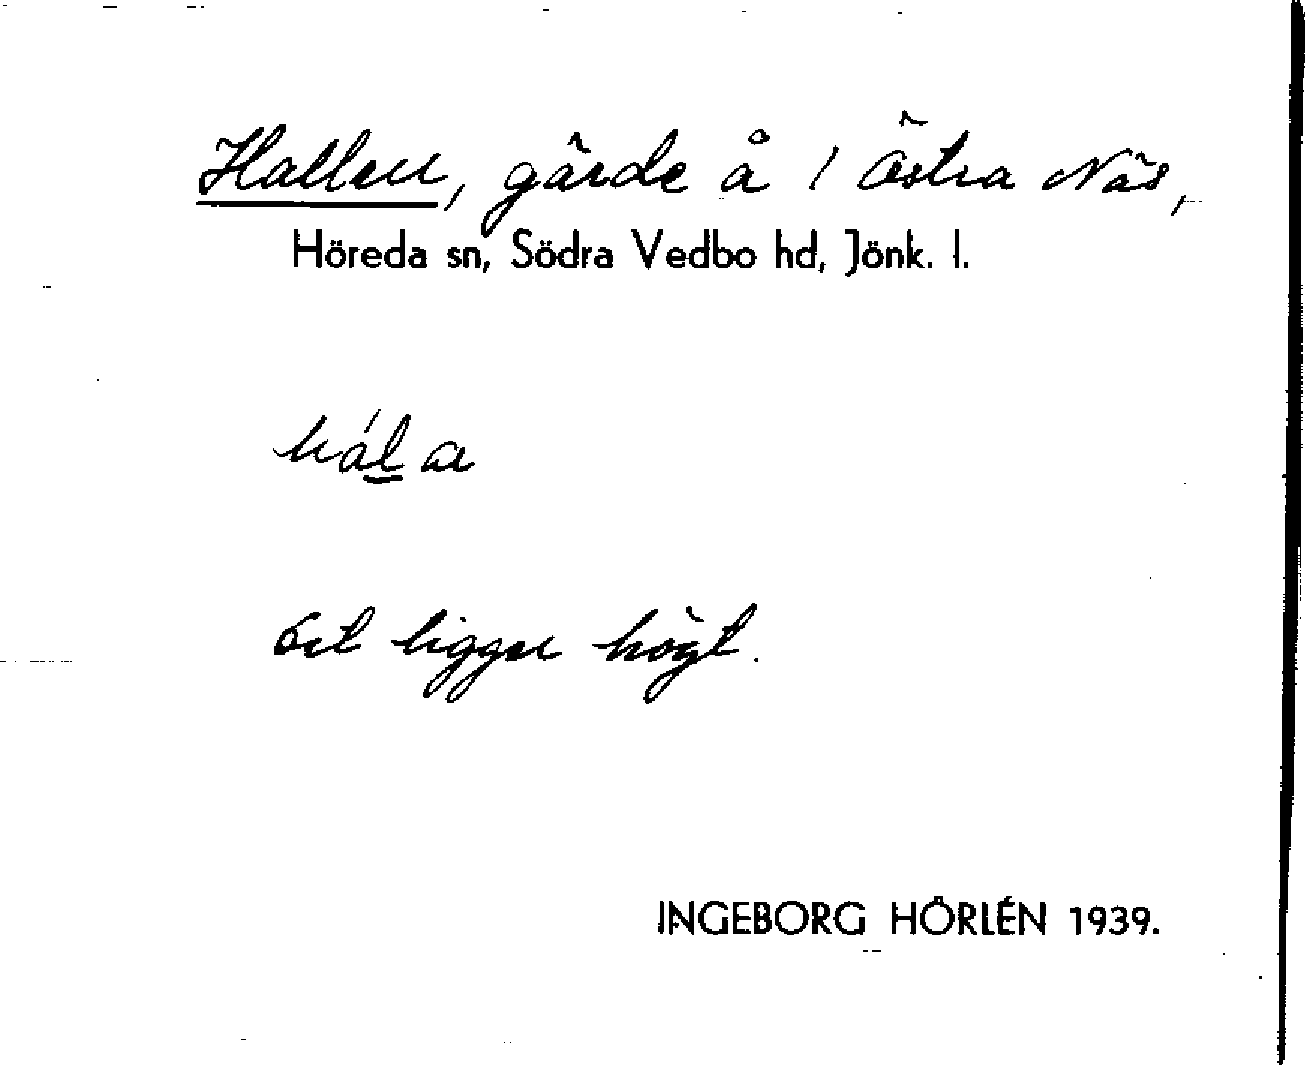 Hallen, gärde å 1 Östra Näs,
Höreda sn, Södra Vedbo hd, Jönk. l.
Det ligger högt.
INGEBORG HÖRLÉN 1939.